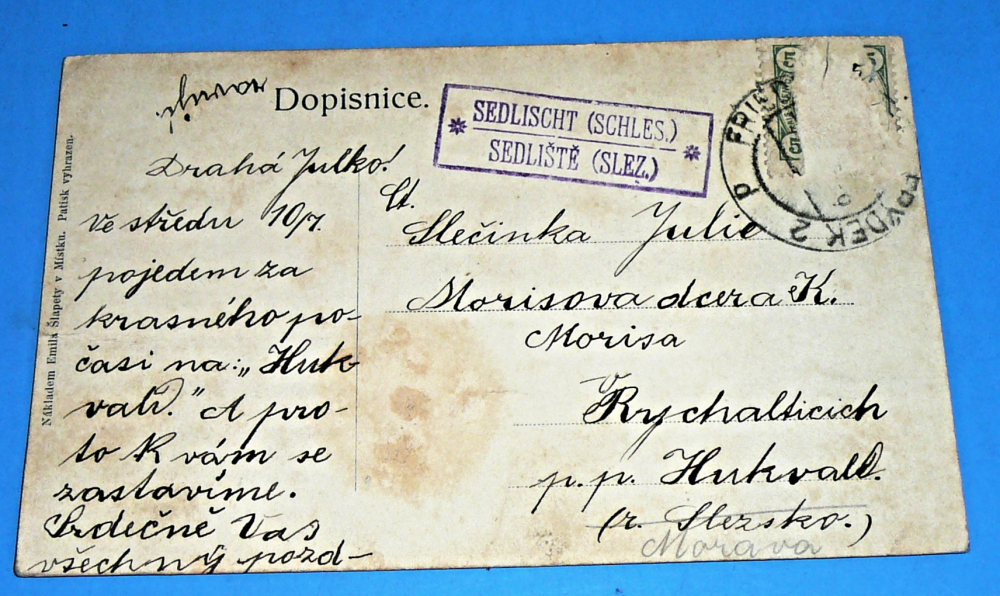 Dopisnice.
SEDLISCHT (SCHLES.)
SEDLIŠTĚ (SLEZ.)
FRYDEK 2
Nákladem Emila Šlapety v Místku. Patisk vyhrazen.
Drahá Julko!
Ve středu 10/7.
pojedem za
krasného po-
časi na: „Huk-
vald." A pro-
to k vám se
zastavíme.
Srdečně Vas
všechny pozd-
Ct.
Slečinka Julie
Morisova dcera K.
Morisa
v Rychalticich
p. p. Hukvald.
(r. Slezsko.)
Morava